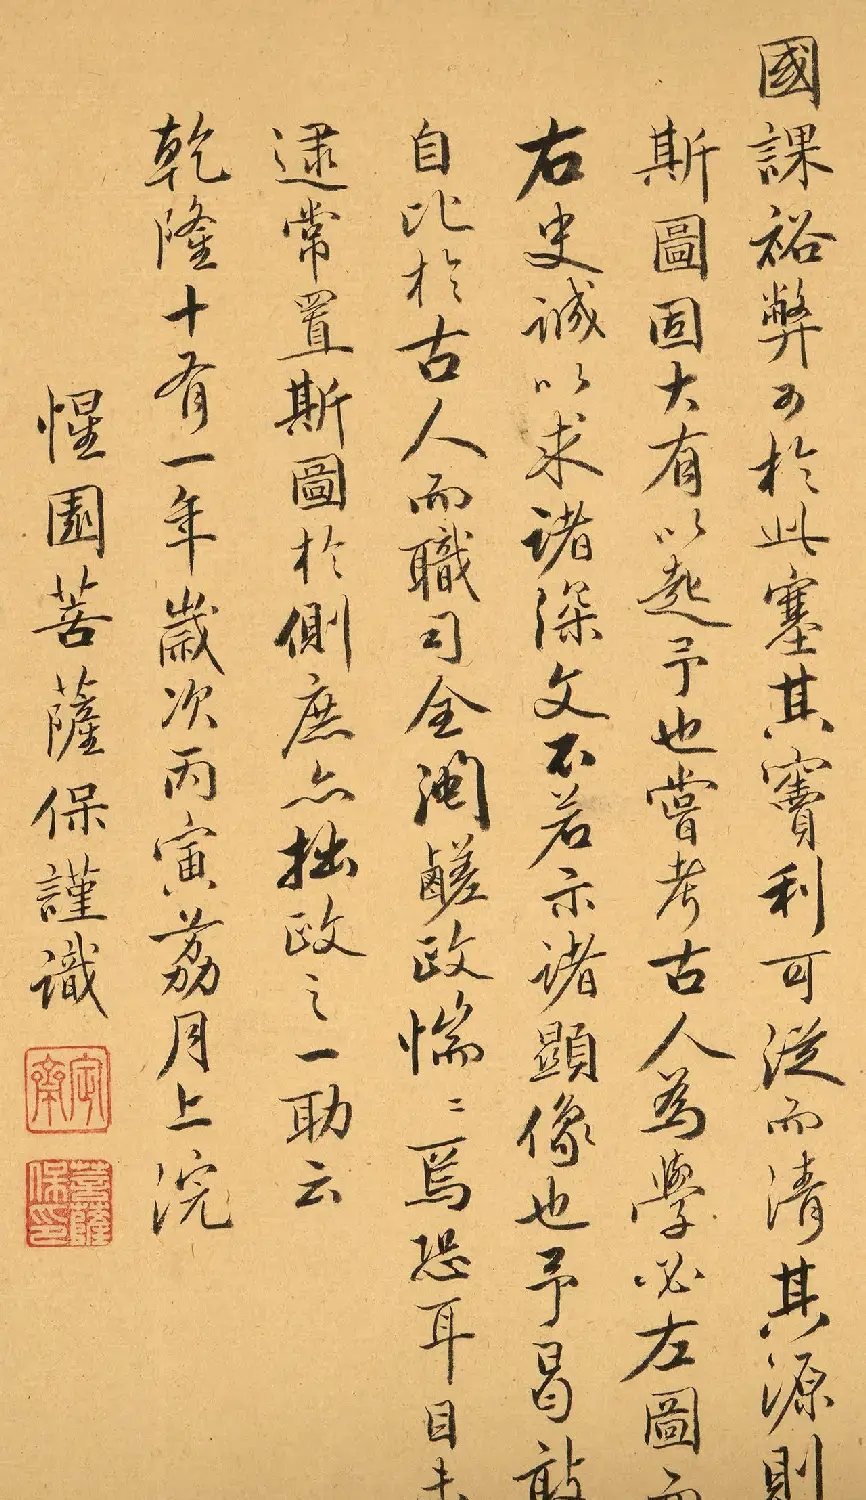 國課裕弊可於此塞其竇利可從而清其源則
斯圖固大有以起予也嘗考古人為學必左圖而
右史誠以求諸深文不若示諸顯像也予曷敢
自比於古人而職司全閩鹺政惴〻焉恐耳目未
逮常置斯圖於側庶亦拙政之一助云
乾隆十有一年歲次丙寅荔月上浣
惺園菩薩保謹識
定齋
菩薩保印